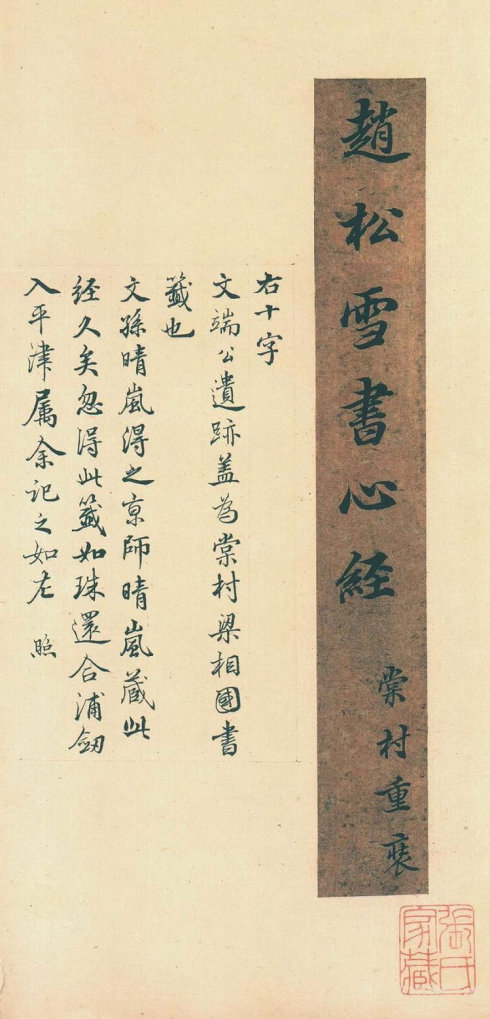 趙松雪書心経
棠村重裝
右十字
文端公遺跡蓋為棠村梁相國書
籤也
文孫晴嵐得之京師晴嵐藏此
経久矣忽得此籤如珠還合浦劒
入平津属余記之如左 照
張氏
家藏